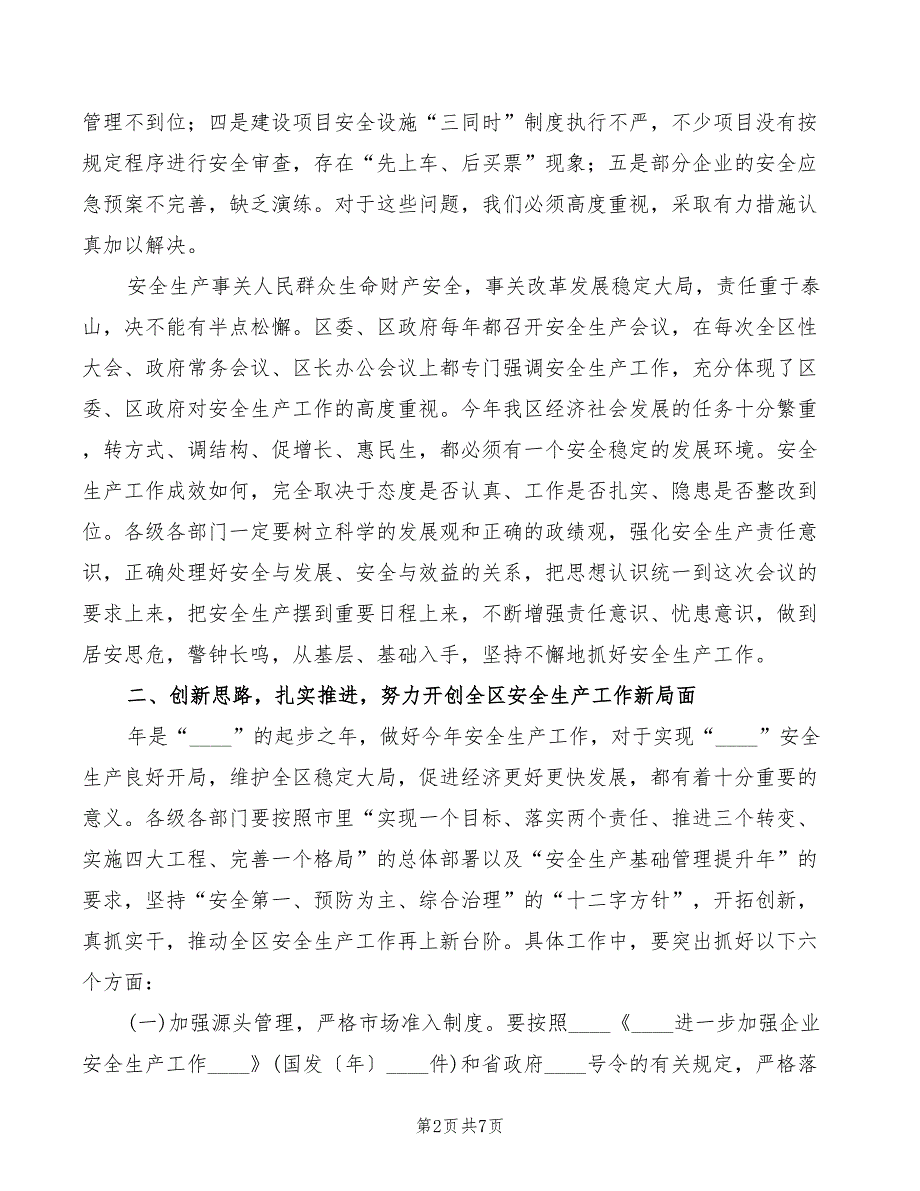 管理不到位；四是建设项目安全设施“三同时”制度执行不严，不少项目没有按
规定程序进行安全审查，存在“先上车、后买票”现象；五是部分企业的安全应
急预案不完善，缺乏演练。对于这些问题，我们必须高度重视，采取有力措施认
真加以解决。
安全生产事关人民群众生命财产安全，事关改革发展稳定大局，责任重于泰
山，决不能有半点松懈。区委、区政府每年都召开安全生产会议，在每次全区性
大会、政府常务会议、区长办公会议上都专门强调安全生产工作，充分体现了区
委、区政府对安全生产工作的高度重视。今年我区经济社会发展的任务十分繁重
，转方式、调结构、促增长、惠民生，都必须有一个安全稳定的发展环境。安全
生产工作成效如何，完全取决于态度是否认真、工作是否扎实、隐患是否整改到
位。各级各部门一定要树立科学的发展观和正确的政绩观，强化安全生产责任意
识，正确处理好安全与发展、安全与效益的关系，把思想认识统一到这次会议的
要求上来，把安全生产摆到重要日程上来，不断增强责任意识、忧患意识，做到
居安思危，警钟长鸣，从基层、基础入手，坚持不懈地抓好安全生产工作。
二、创新思路，扎实推进，努力开创全区安全生产工作新局面
年是“____”的起步之年，做好今年安全生产工作，对于实现“____”安全
生产良好开局，维护全区稳定大局，促进经济更好更快发展，都有着十分重要的
意义。各级各部门要按照市里“实现一个目标、落实两个责任、推进三个转变、
实施四大工程、完善一个格局”的总体部署以及“安全生产基础管理提升年”的
要求，坚持“安全第一、预防为主、综合治理”的“十二字方针”，开拓创新，
真抓实干，推动全区安全生产工作再上新台阶。具体工作中，要突出抓好以下六
个方面：
(一)加强源头管理，严格市场准入制度。要按照____《____进一步加强企业
安全生产工作____》(国发〔年〕____件)和省政府____号令的有关规定，严格落
第2页 共7页